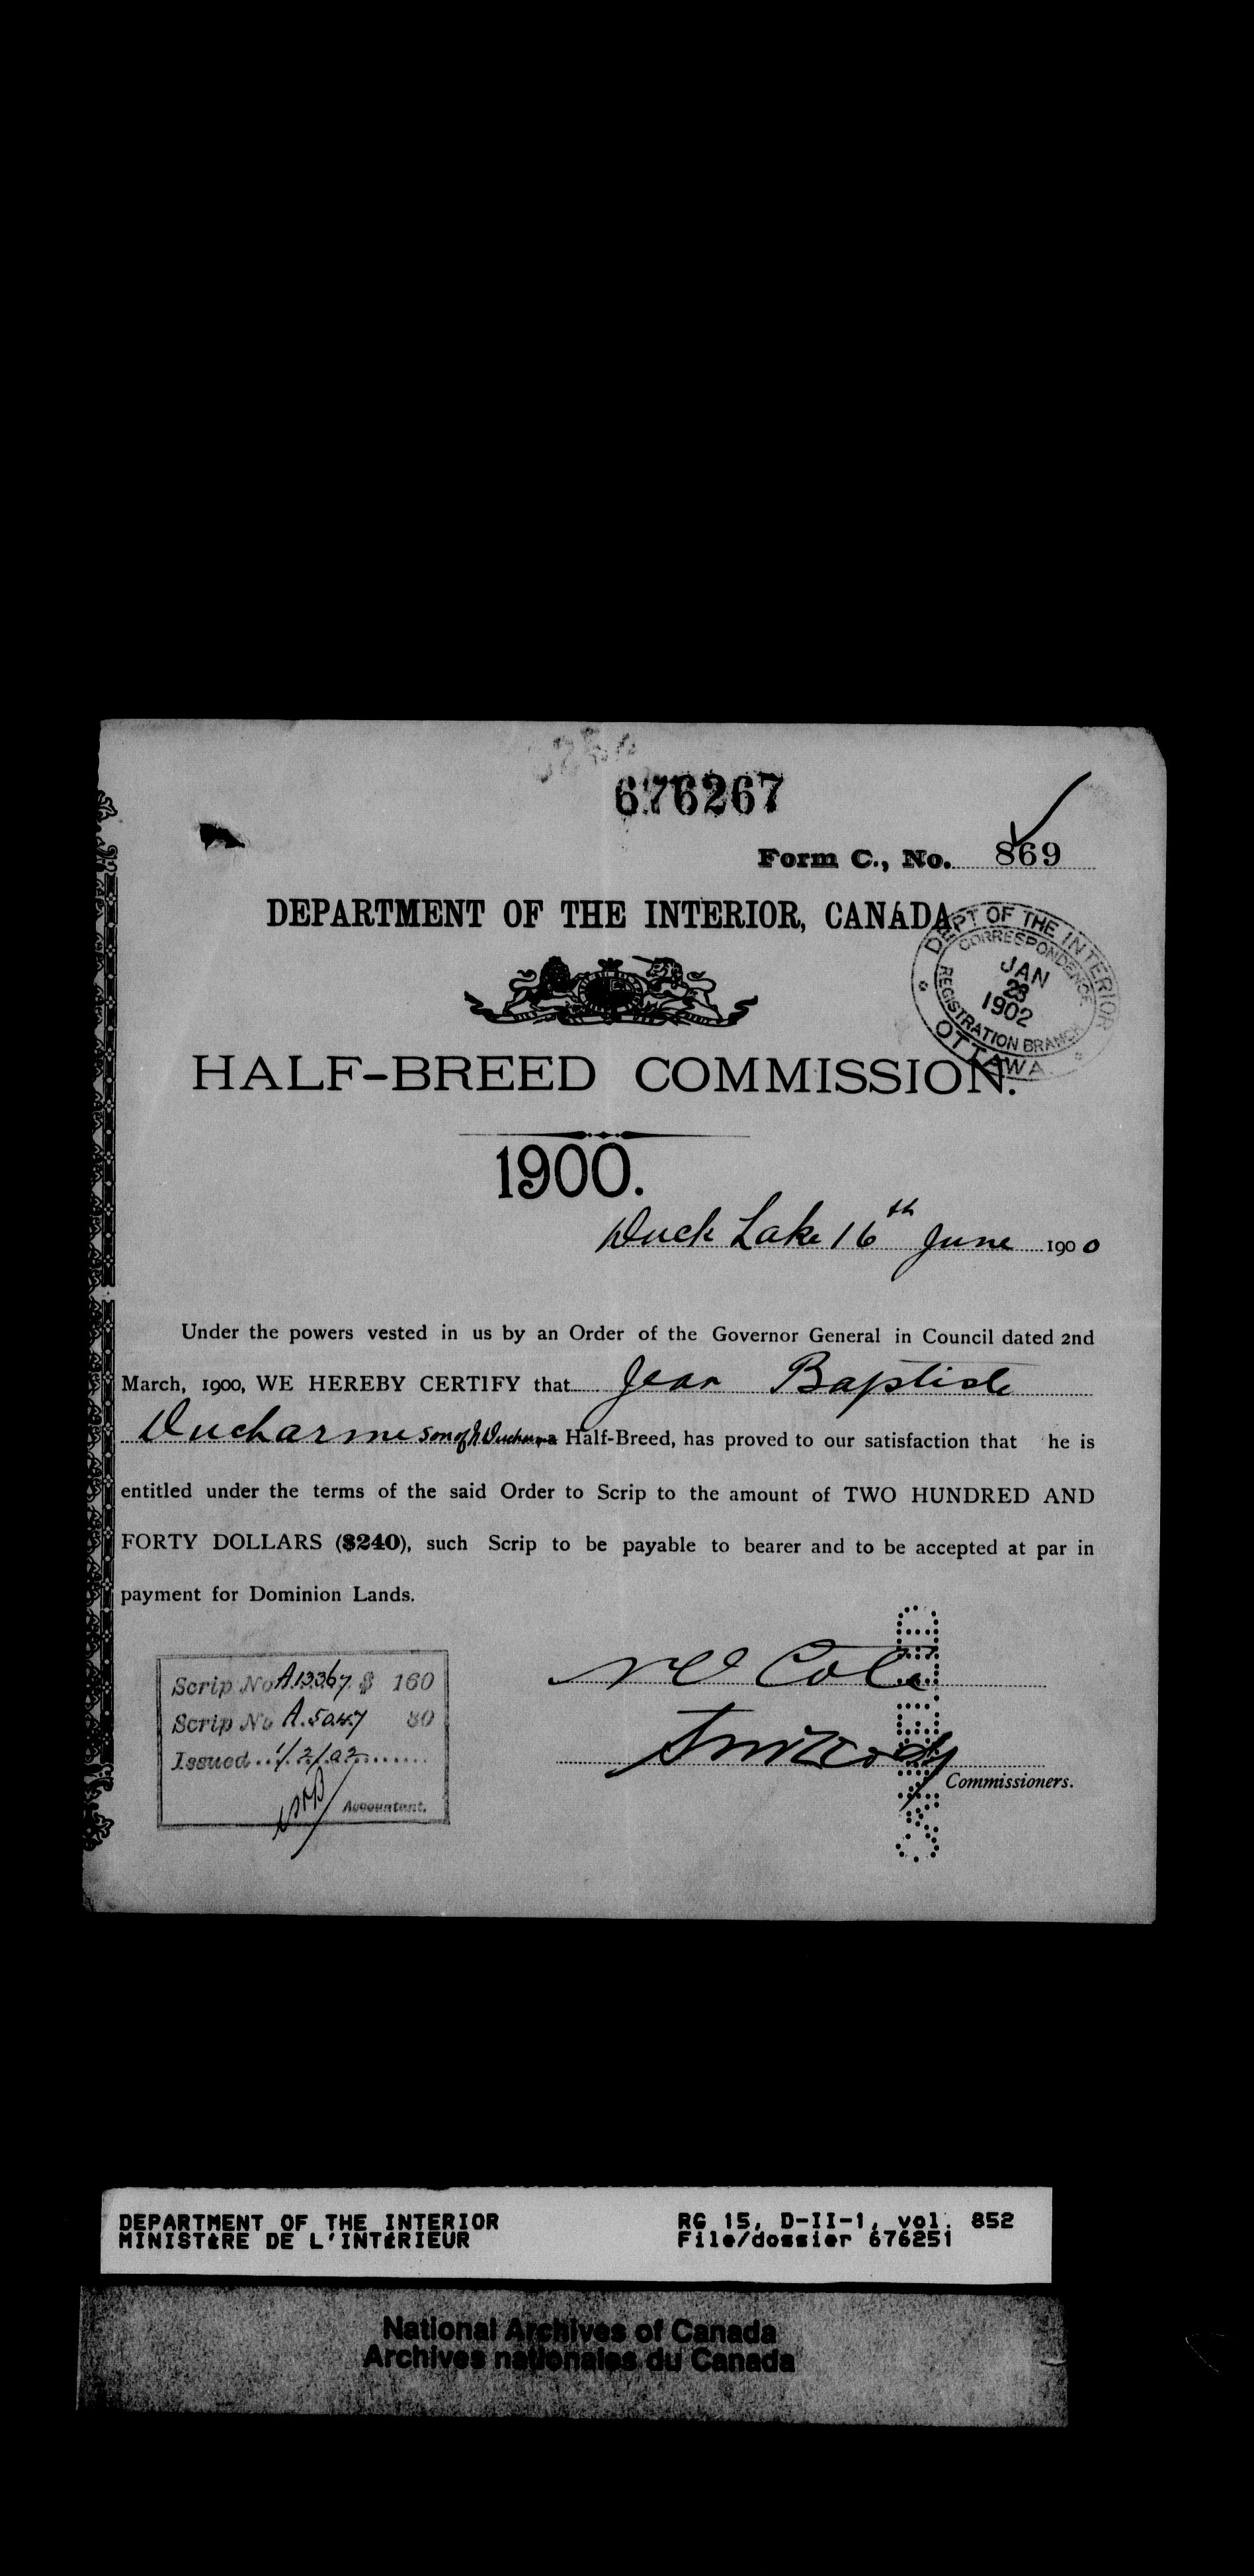 676267
Form C., No. 869
DEPARTMENT OF THE INTERIOR, CANADA
DEPT OF THE INTERIOR
CORRESPONDENCE
JAN
23
1902
REGISTRATION BRANCH
OTTAWA
HALF-BREED COMMISSION.
1900.
Duck Lake 16th June 1900
Under the powers vested in us by an Order of the Governor General in Council dated 2nd
March, 1900, WE HEREBY CERTIFY that Jean Baptiste
Ducharme son of J. Ducharme Half-Breed, has proved to our satisfaction that he is
entitled under the terms of the said Order to Scrip to the amount of TWO HUNDRED AND
FORTY DOLLARS ($240), such Scrip to be payable to bearer and to be accepted at par in
payment for Dominion Lands.
Scrip No A13367 $ 160
Scrip No A.5047 80
Issued 1/2/02
Accountant.
Cote
Commissioners.
DEPARTMENT OF THE INTERIOR
MINISTÈRE DE L'INTÉRIEUR
RG 15, D-II-1, vol. 852
File/dossier 676251
National Archives of Canada
Archives nationales du Canada